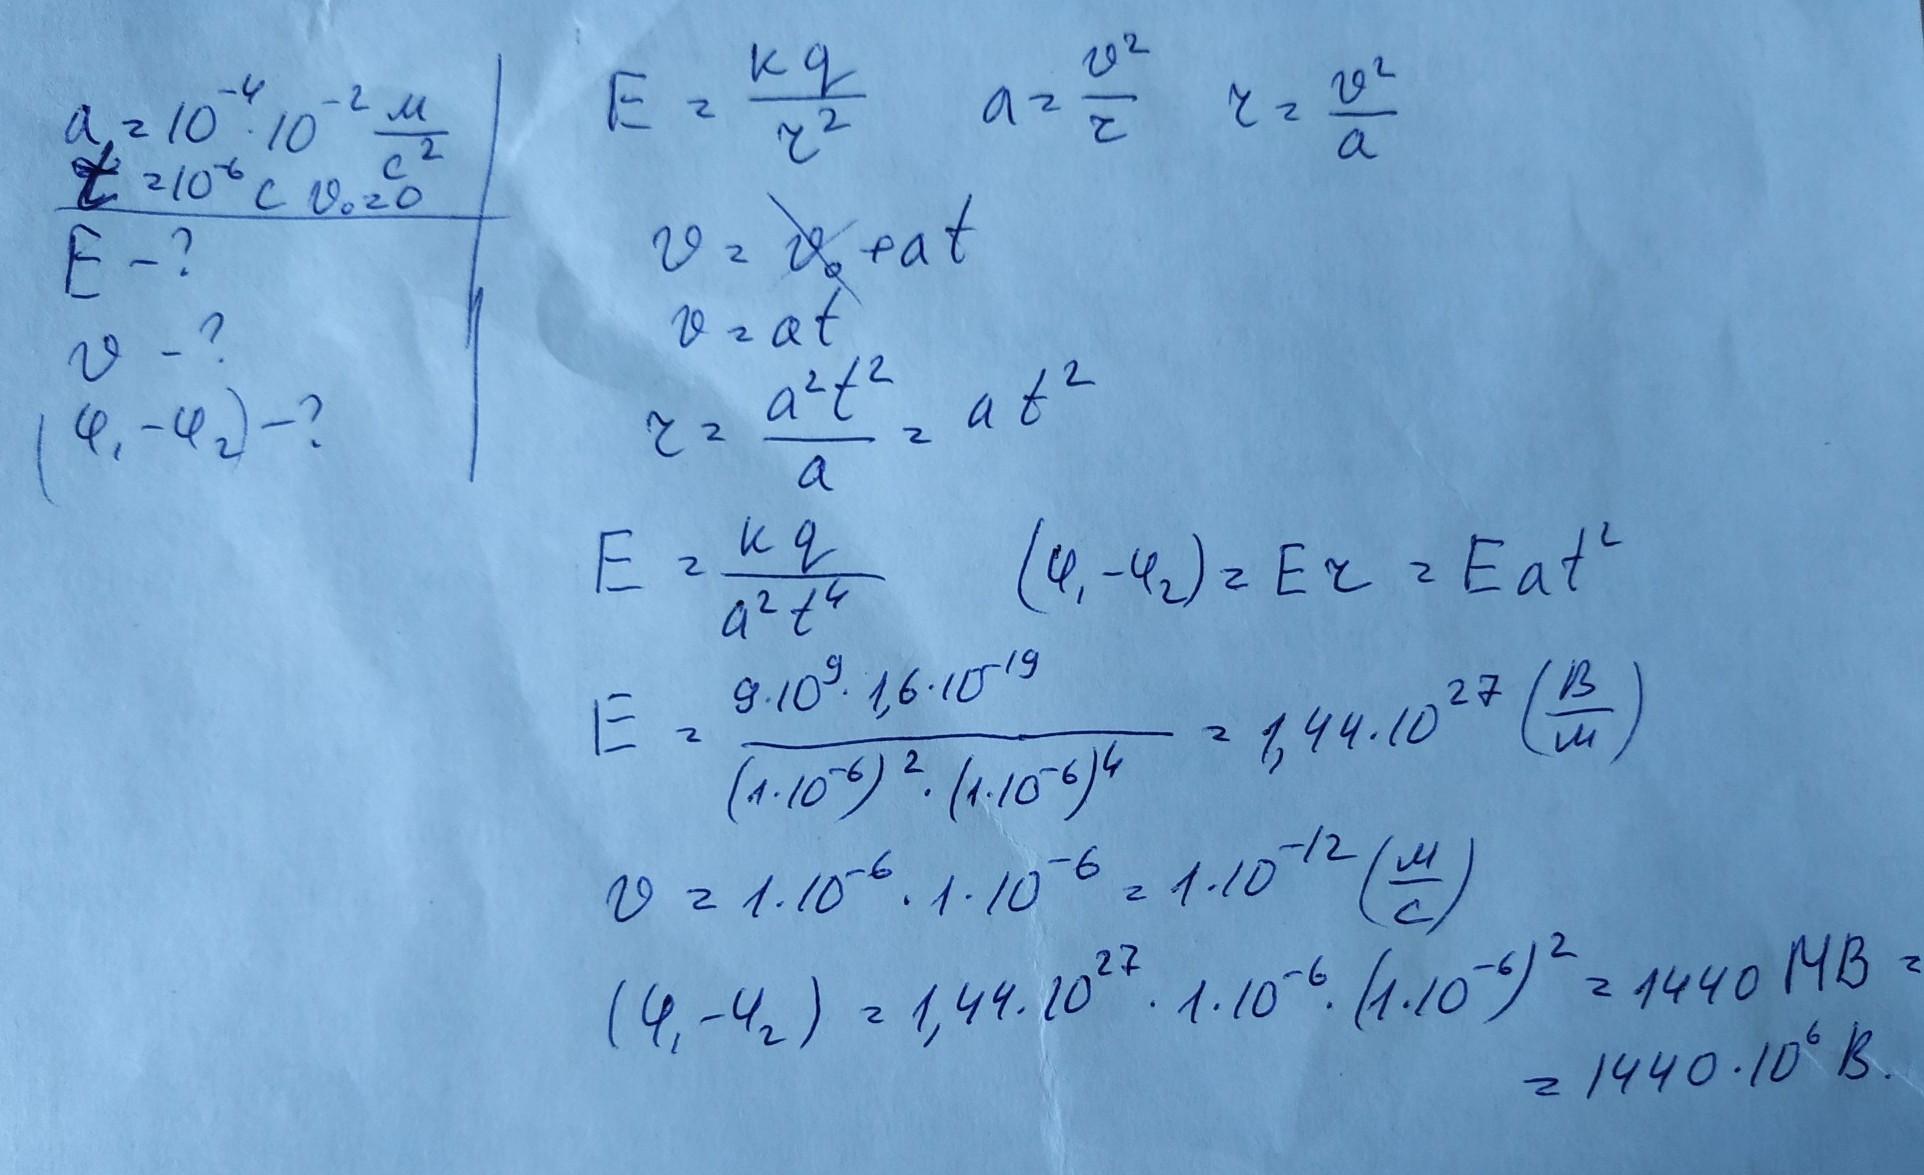 a = 10⁻⁴ · 10⁻² м/с²
t = 10⁻⁶ с v₀ = 0
E - ?
v - ?
(φ₁ - φ₂) - ?
E = kq/r² a = v²/r r = v²/a
v = v₀ + at
v = at
r = a²t²/a = at²
E = kq/a²t⁴ (φ₁ - φ₂) = Er = Eat²
E = 9·10⁹ · 1,6·10⁻¹⁹/(1·10⁻⁶)² · (1·10⁻⁶)⁴ = 1,44·10²⁷ (В/м)
v = 1·10⁻⁶ · 1·10⁻⁶ = 1·10⁻¹² (м/с)
(φ₁ - φ₂) = 1,44·10²⁷ · 1·10⁻⁶ · (1·10⁻⁶)² = 1440 МВ =
= 1440·10⁶ В.